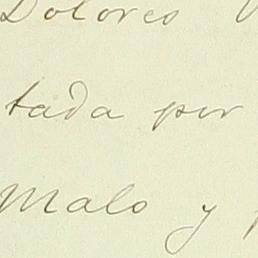 Dolores
tada por
Malo y